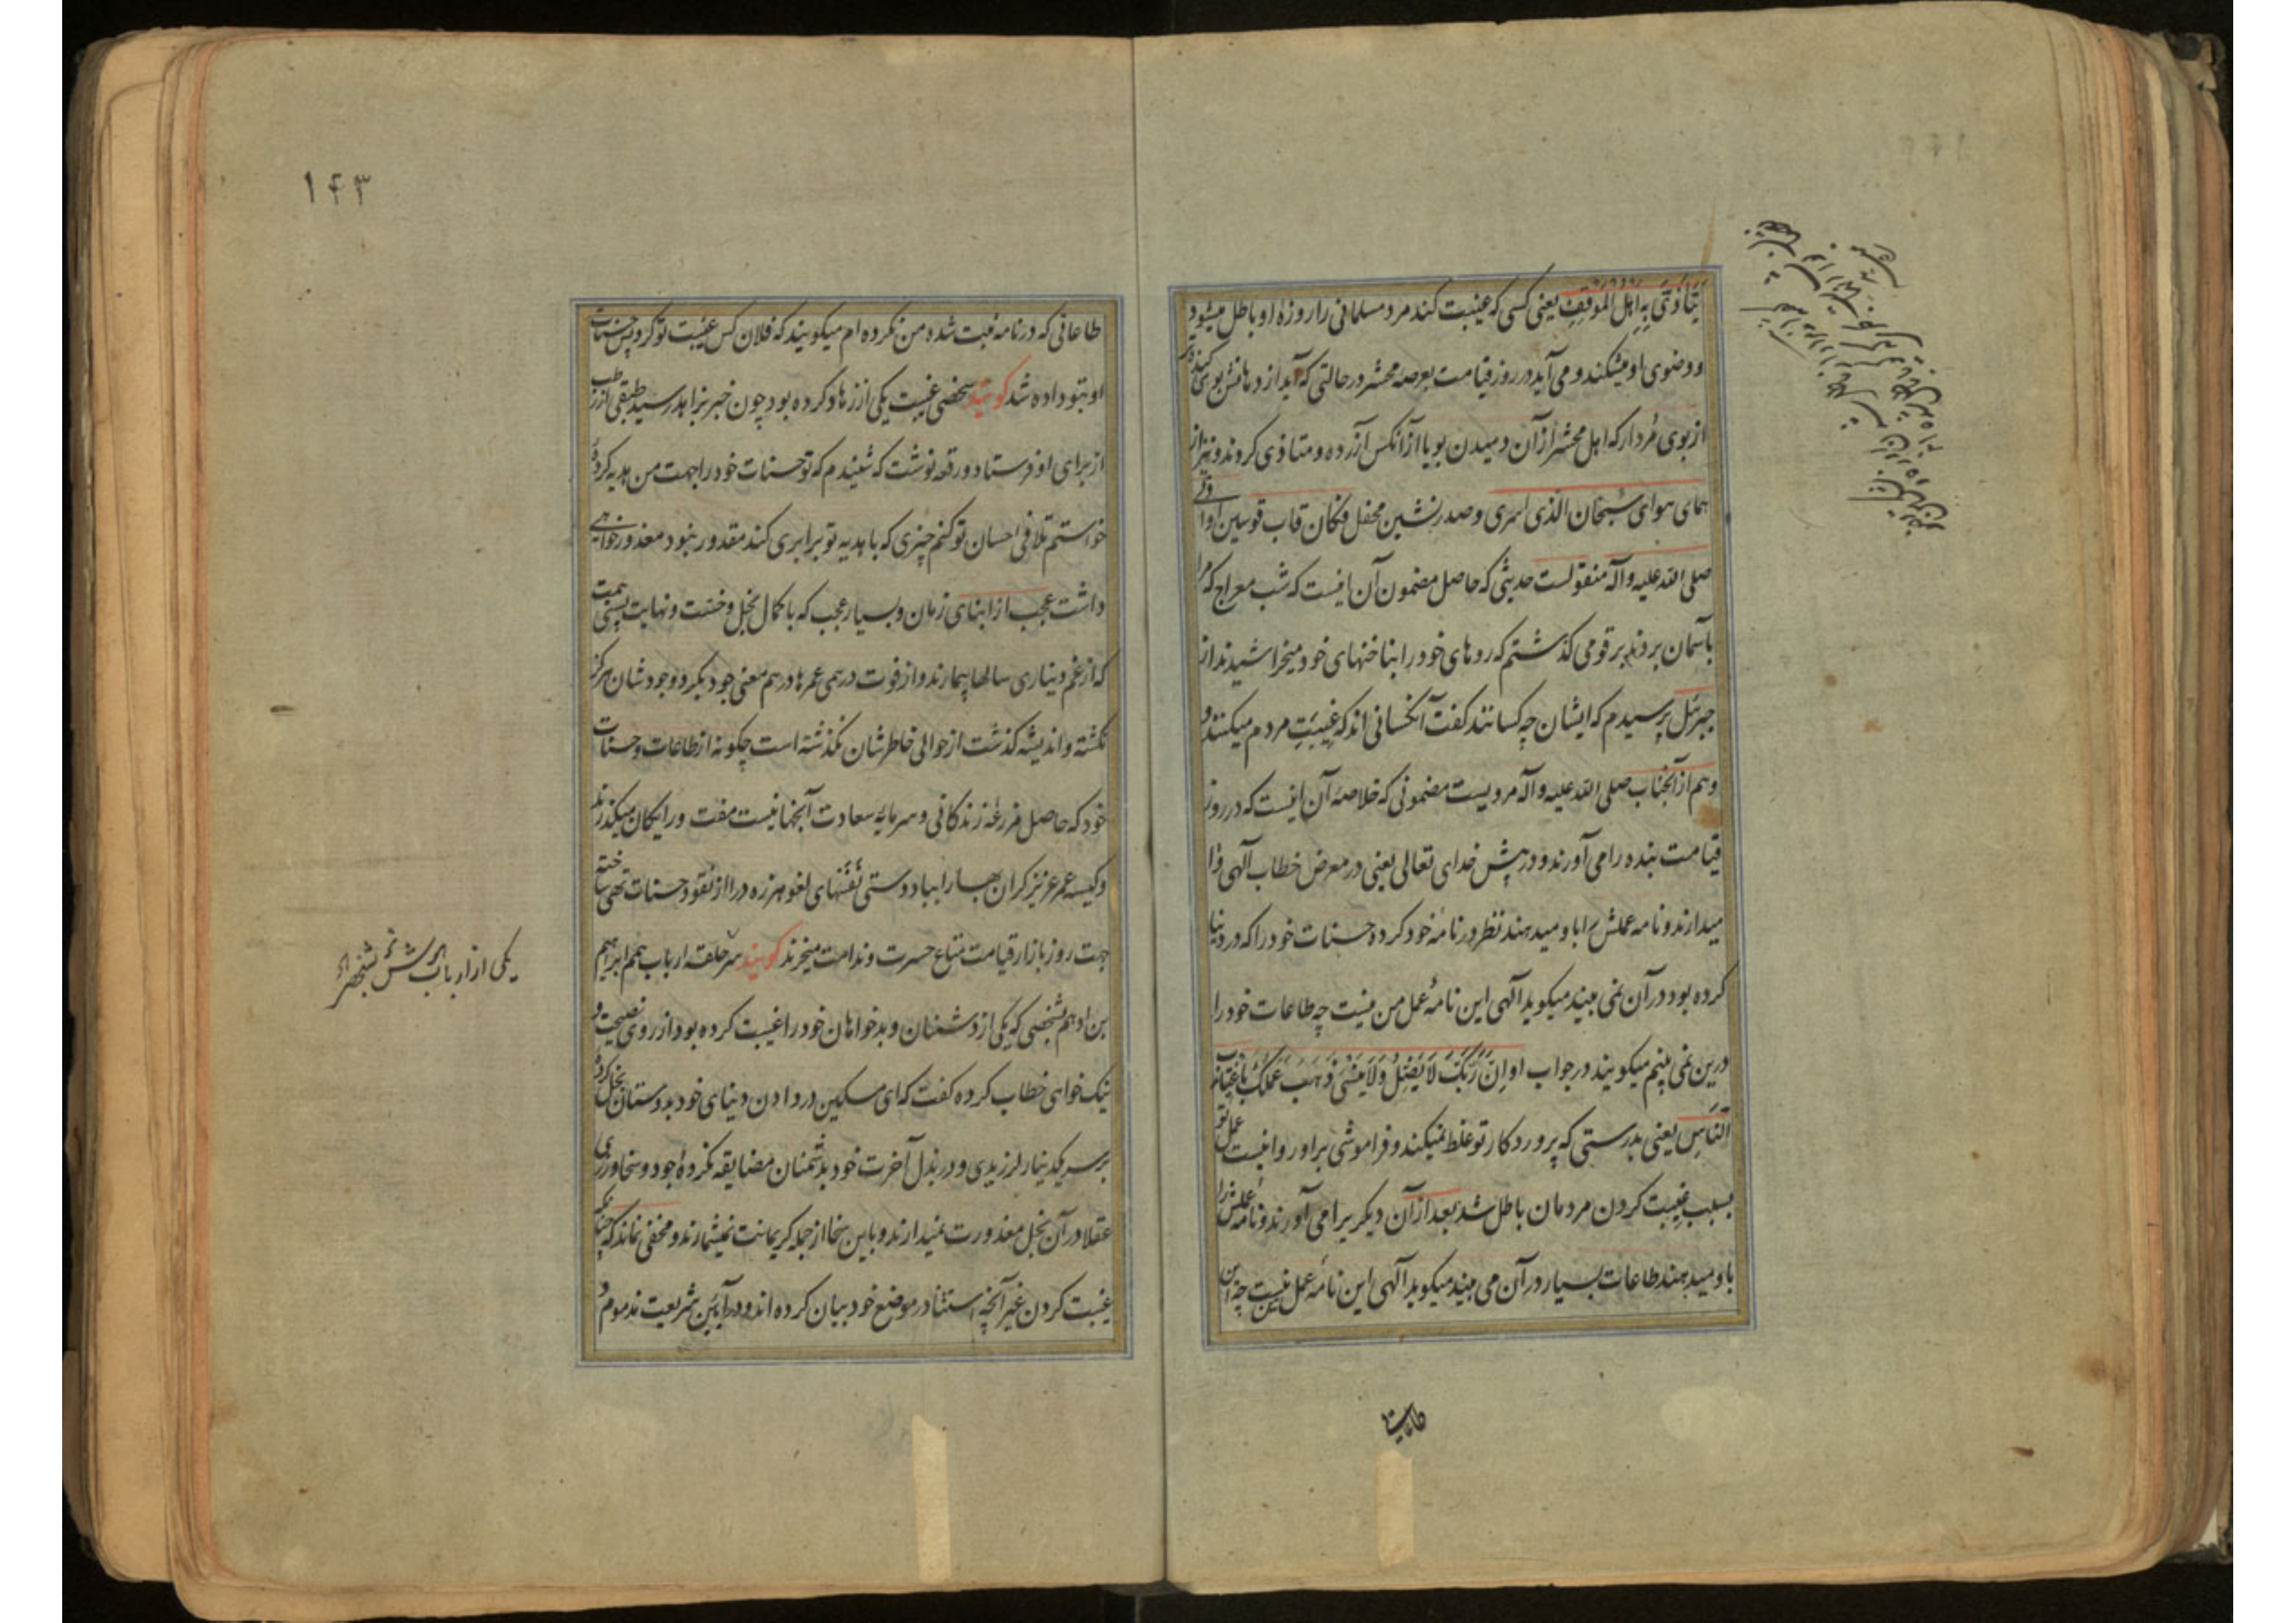 یتاذی به اهل الموقف یعنی کسی که غیبت کند مرد مسلمانی را روزهٔ او باطل میشود
و وضوی او میشکند و می آید در روز قیامت بعرصه محشر در حالتی که آید از دهانش بوی کنده تر
از بوی مردار که اهل محشر از آن دمیدن بویا از آنکس آزرده و متاذی کردند و نیز از
همای هوای سبحان الذی اسری و صدرنشین محفل فکان قاب قوسین او ادنی
صلی الله علیه و آله منقولست حدیثی که حاصل مضمون آن اینست که شب معراج که مرا
بآسمان بردند بر قومی کذشتم که روهای خود را بناخنهای خود میخراشیدند از
جبرئیل پرسیدم که ایشان چه کسانند کفت آنکسانی اند که غیبت مردم میکنند و
و هم از آنجناب صلی الله علیه و آله مرویست مضمونی که خلاصهٔ آن اینست که در روز
قیامت بنده را می آورند و در پیش خدای تعالی یعنی در معرض خطاب آلهی وا
میدارند و نامه عملش را باو میدهند نظر در نامهٔ خود کرده حسنات خود را که در دنیا
کرده بود در آن نمی بیند میکوید آلهی این نامهٔ عمل من نیست چه طاعات خود را
درین نمی بینم میکویند در جواب او ان ربک لا یضل و لا ینسی ذهب عملک باغتیاب
الناس یعنی بدرستی که پروردکار تو غلط نمیکند و فراموشی بر او روا نیست عمل تو
بسبب غیبت کردن مردمان باطل شد بعد از آن دیکریرا می آورند و نامه عملش را
باو میدهند طاعات بسیار در آن می بیند میکوید آلهی این نامهٔ عمل من نیست چه این
طاعاتی
۱۴۳
طاعاتی که در نامه ثبت شده من نکرده ام میکویند که فلان کس غیبت تو کرد پس حسنات
او بتو داده شد کویند شخصی غیبت یکی از زهاد کرده بود چون خبر بزاهد رسید طبقی از رطب
از برای او فرستاد و رقعه نوشت که شنیدم که تو حسنات خود را جهت من هدیه کردهٔ
خواستم تلافی احسان تو کنم چیزی که با هدیه تو برابری کند مقدور نبود معذور خواهی
داشت عجب از ابنای زمان و بسیار عجب که با کمال بخل و خست و نهایت پستی همت
که از غم دیناری سالها بیمارند و از فوت درهمی عمرها درهم معنی جود بکرد وجودشان هرکز
نکشته و اندیشه کذشت از حوالی خاطرشان نکذشته است چکونه از طاعات و حسنات
خود که حاصل مزرعهٔ زندکانی و سرمایه سعادت آنجهانیست مفت و رایکان میکذرند
و کیسه عمر عزیز کران بها را بباد دستی نفسهای لغو هرزه درا از نقود حسنات تهی ساخته
جهت روز بازار قیامت متاع حسرت و ندامت میخرند کویند سر حلقه ارباب همم ابراهیم
بن ادهم بشخصی که یکی از دشمنان و بدخواهان خود را غیبت کرده بود از روی نصیحت و
نیک خواهی خطاب کرده کفت که ای مسکین در دادن دنیای خود بدوستان بخل کردهٔ
بر سر یکدینار لرزیدی و در بذل آخرت خود بدشمنان مضایقه نکردهٔ و جود و سخاورزی
عقلا در آن بخل معذورت نمیدارند و باین سخا از جمله کریمانت نمیشمارند و مخفی نماند که
غیبت کردن غیر آنچه استثنا در موضع خود بیان کرده اند و در آیین شریعت مذموم و
یکی از ارباب